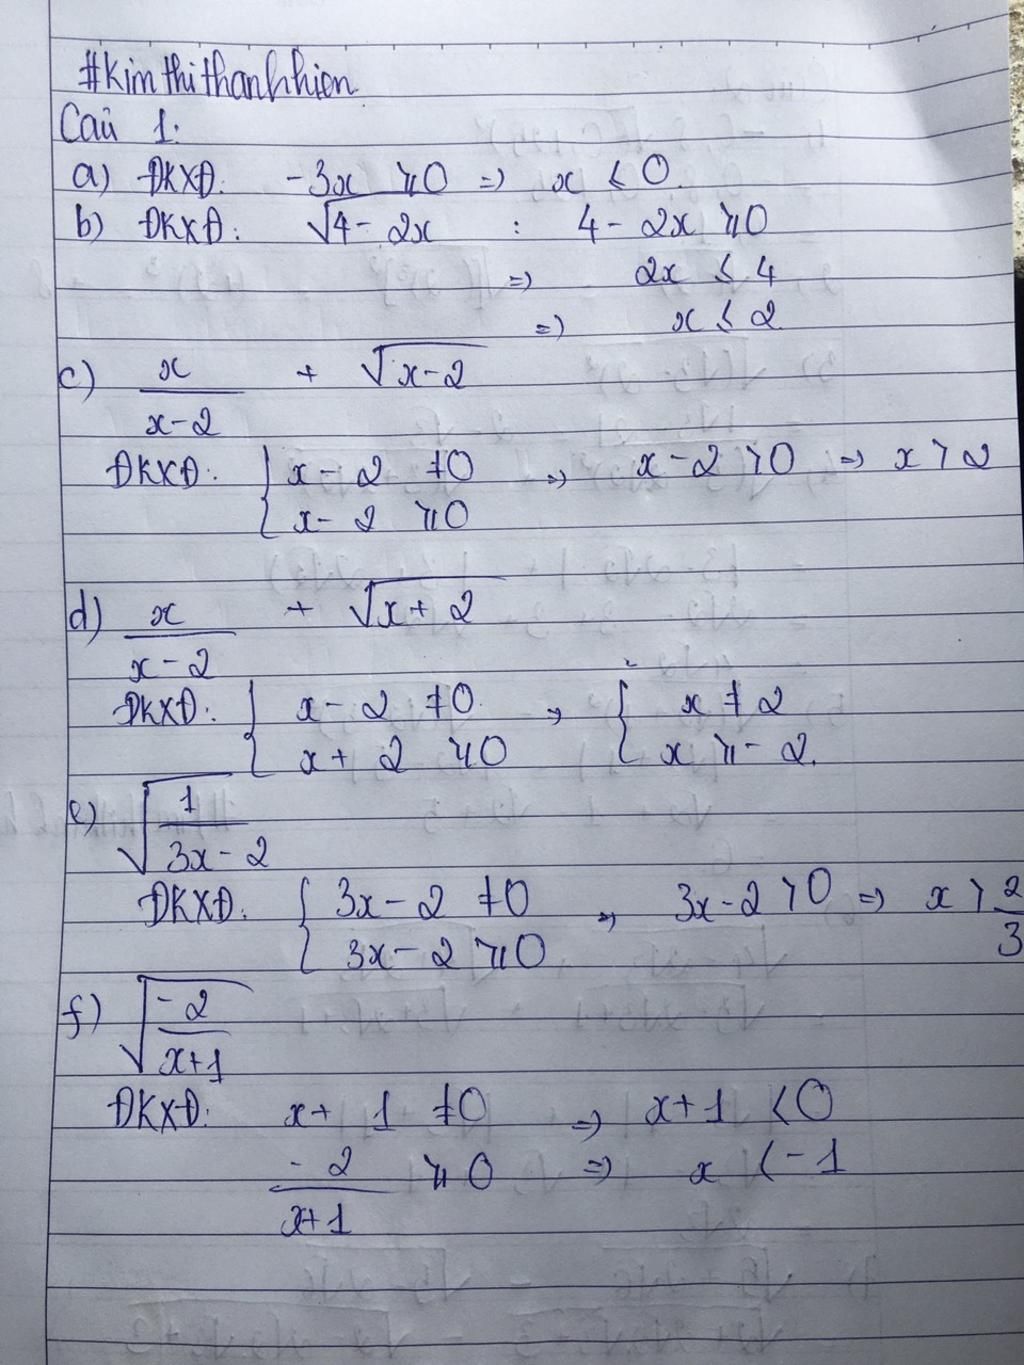 #kimthithanhhien
Câu 1:
a) ĐKXĐ: -3x ≥ 0 => x ≤ 0.
b) ĐKXĐ: √4-2x : 4-2x ≥ 0
=> 2x ≤ 4
=> x ≤ 2
c) x/(x-2) + √x-2
ĐKXĐ: { x-2 ≠ 0 => x-2 > 0 => x > 2
x-2 ≥ 0
d) x/(x-2) + √x+2
ĐKXĐ: { x-2 ≠ 0. => { x ≠ 2
x+2 ≥ 0 x ≥ -2.
e) √1/(3x-2)
ĐKXĐ: { 3x-2 ≠ 0 => 3x-2 > 0 => x > 2/3
3x-2 ≥ 0
f) √-2/(x+1)
ĐKXĐ: x+1 ≠ 0 => x+1 < 0
-2/(x+1) ≥ 0 => x < -1